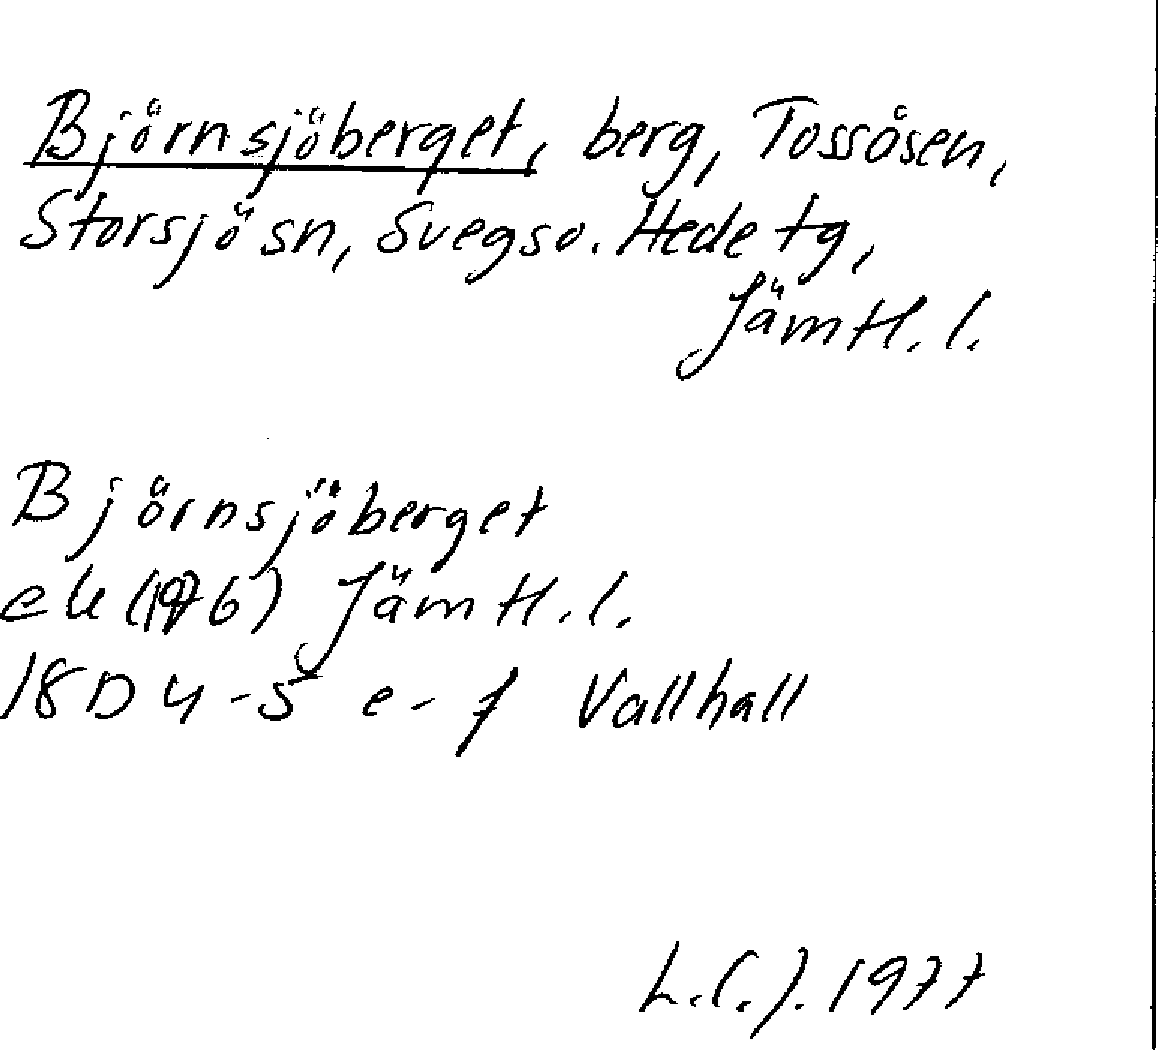 Björnsjöberget, berg, Tossåsen,
Storsjö sn, Svegs o. Hede tg,
Jämtl. l.
Björnsjöberget
ek (1976) Jämtl. l.
18D 4-5 e-f Vallhall
1977